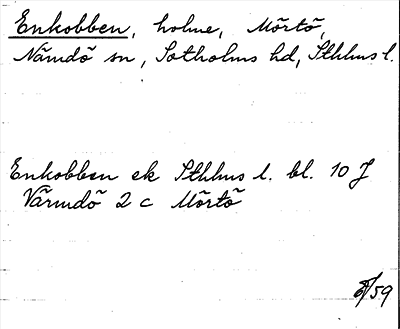 Enkobben, holme, Mörtö,
Nämdö sn, Sotholms hd, Sthlms l.
Enkobben ek Sthlms l. bl. 10 J
Värmdö 2 c Mörtö
/59